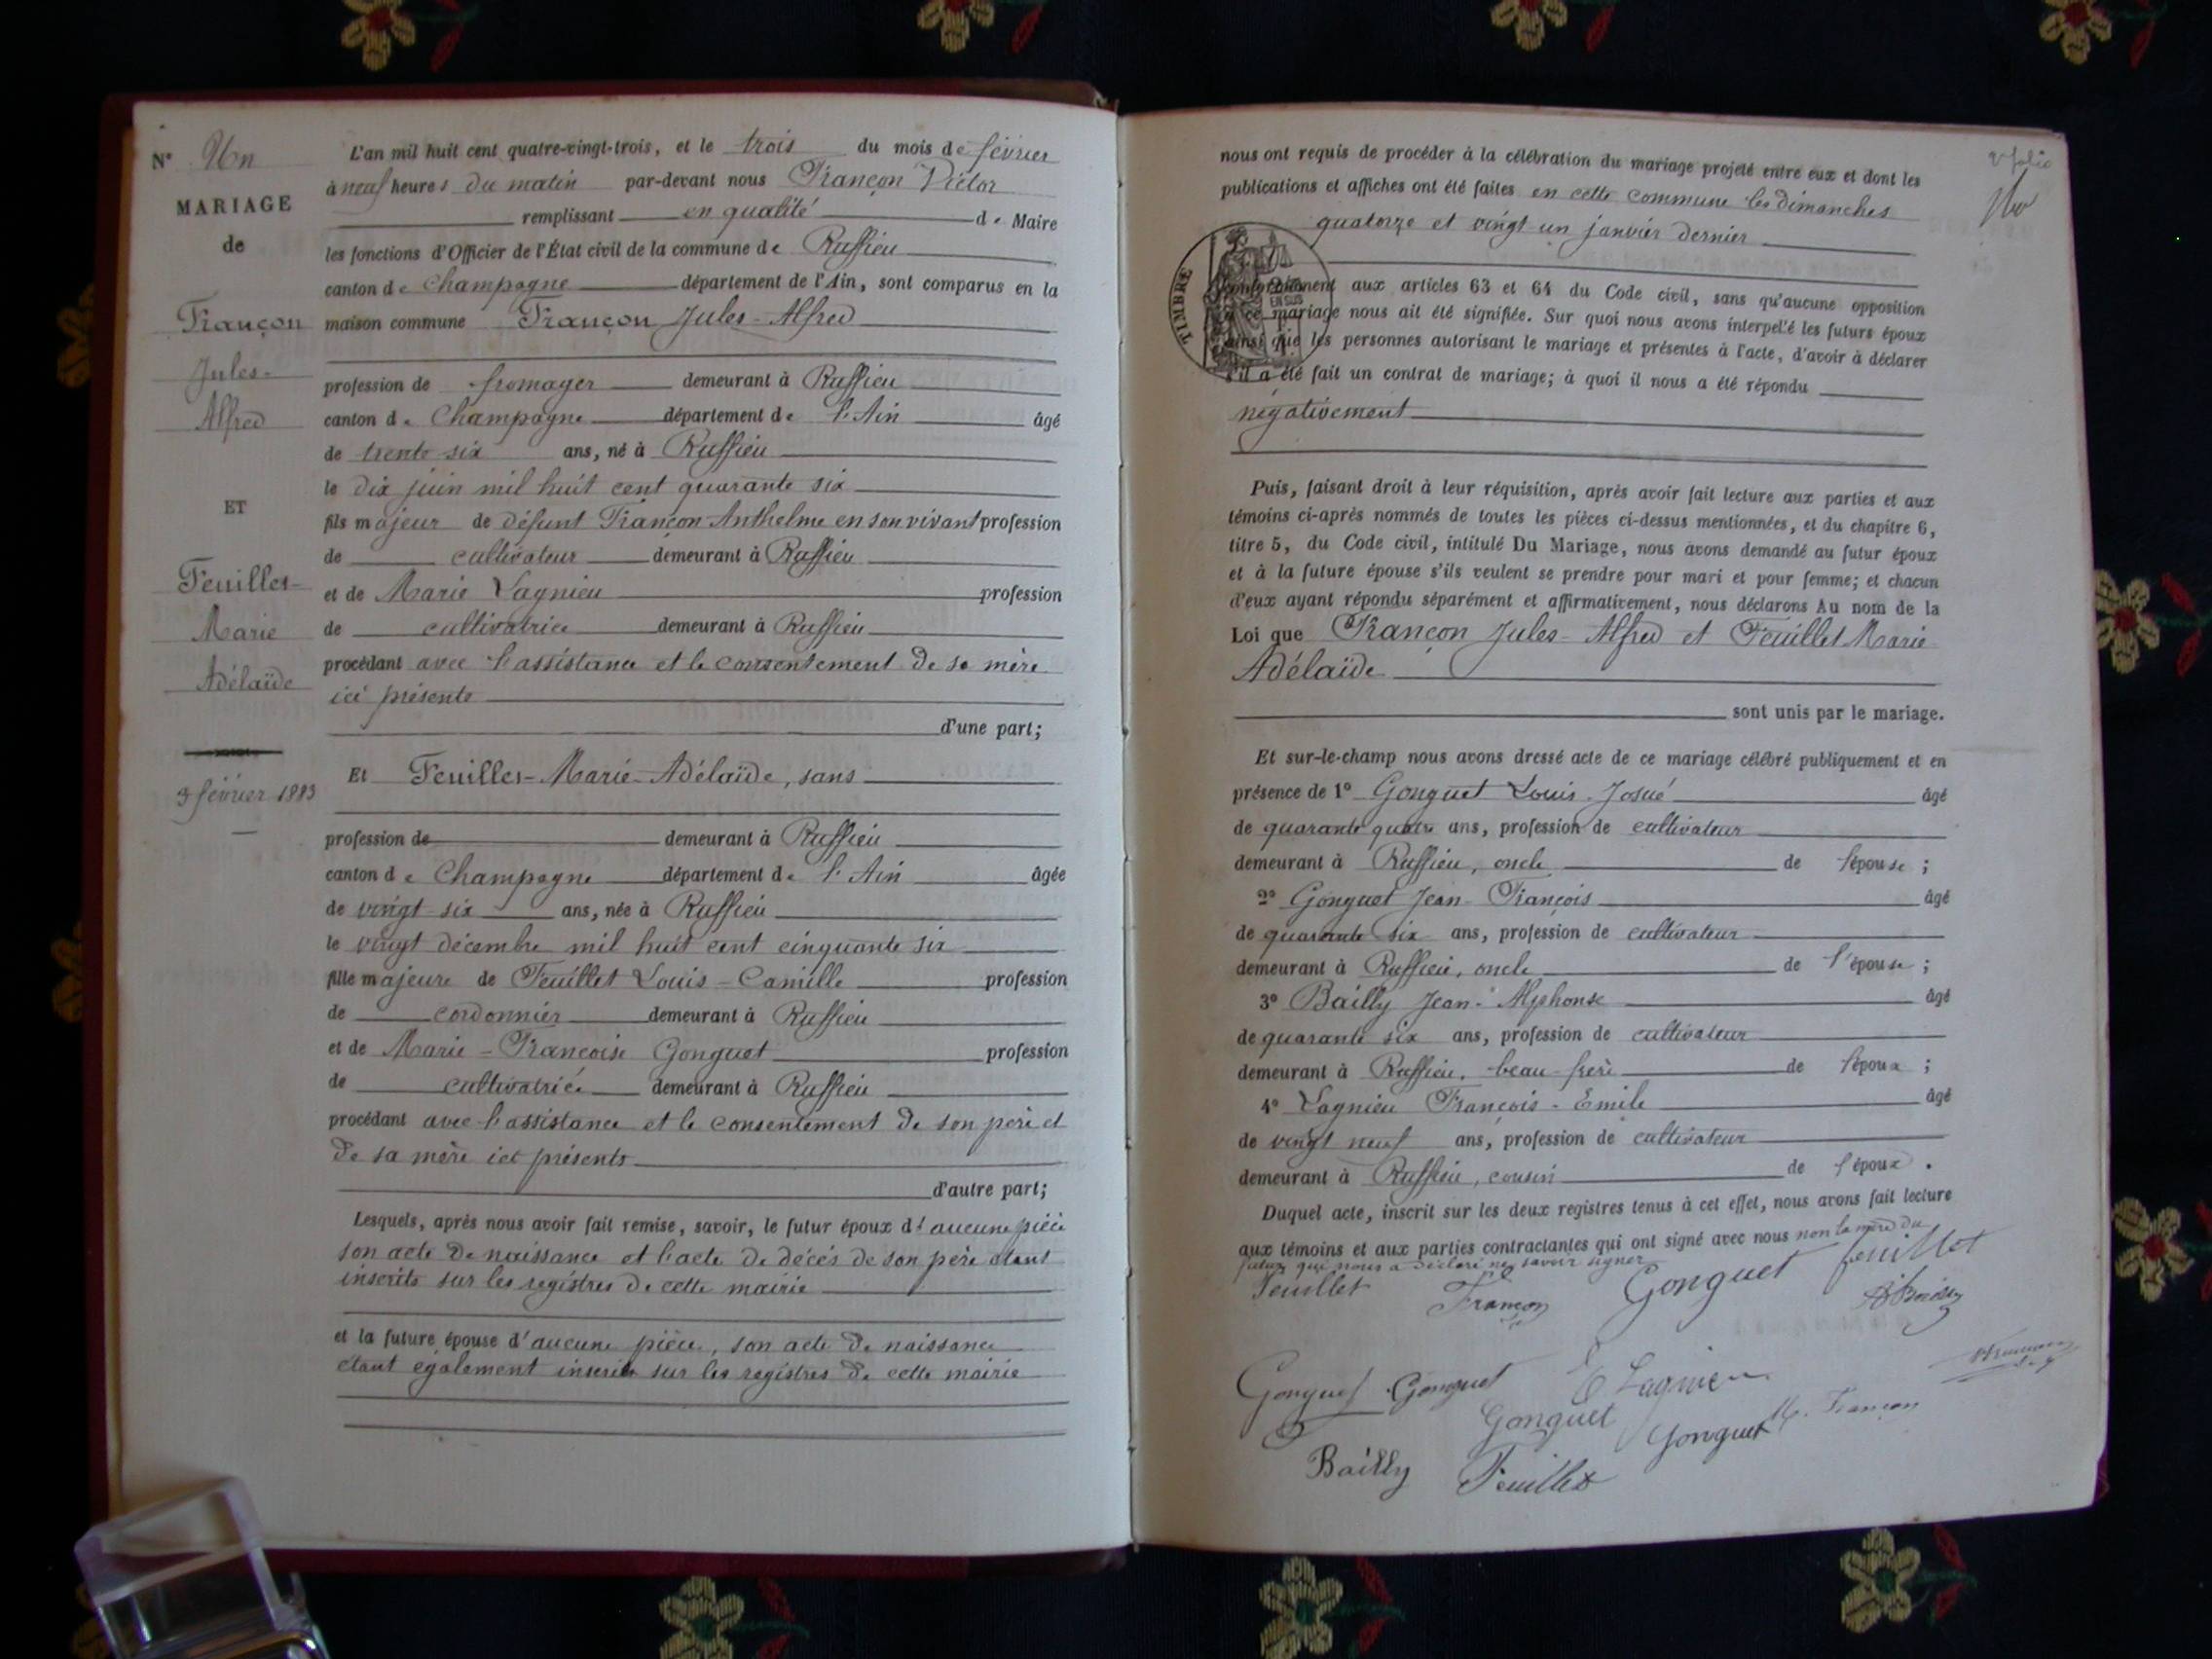 N° Un
MARIAGE
de
Françon
Jules-
Alfred
ET
Feuillet
Marie
Adélaïde
3 février 1883
L'an mil huit cent quatre-vingt-trois, et le trois du mois de février
à neuf heures du matin par-devant nous Françon Victor
remplissant en qualité de Maire
les fonctions d'Officier de l'État civil de la commune de Ruffieu
canton de Champagne département de l'Ain, sont comparus en la
maison commune Françon Jules-Alfred
profession de fromager demeurant à Ruffieu
canton de Champagne département de l'Ain âgé
de trente six ans, né à Ruffieu
le dix juin mil huit cent quarante six
fils majeur de défunt Françon Anthelme en son vivant profession
de cultivateur demeurant à Ruffieu
et de Marie Lagnieu profession
de cultivatrice demeurant à Ruffieu
procédant avec l'assistance et le consentement de sa mère
ici présente
d'une part;
Et Feuillet-Marie-Adélaïde, sans
profession de demeurant à Ruffieu
canton de Champagne département de l'Ain âgée
de vingt-six ans, née à Ruffieu
le vingt décembre mil huit cent cinquante six
fille majeure de Feuillet Louis-Camille profession
de cordonnier demeurant à Ruffieu
et de Marie-Françoise Gonguet profession
de cultivatrice demeurant à Ruffieu
procédant avec l'assistance et le consentement de son père et
de sa mère ici présents
d'autre part;
Lesquels, après nous avoir fait remise, savoir, le futur époux d'aucune pièce
son acte de naissance et l'acte de décès de son père étant
inscrits sur les registres de cette mairie
et la future épouse d'aucune pièce, son acte de naissance
étant également inscrit sur les registres de cette mairie
nous ont requis de procéder à la célébration du mariage projeté entre eux et dont les
publications et affiches ont été faites en cette commune les dimanches
quatorze et vingt-un janvier dernier
TIMBRE
EN SUS
conformément aux articles 63 et 64 du Code civil, sans qu'aucune opposition
à ce mariage nous ait été signifiée. Sur quoi nous avons interpellé les futurs époux
ainsi que les personnes autorisant le mariage et présentes à l'acte, d'avoir à déclarer
s'il a été fait un contrat de mariage; à quoi il nous a été répondu
négativement
Puis, faisant droit à leur réquisition, après avoir fait lecture aux parties et aux
témoins ci-après nommés de toutes les pièces ci-dessus mentionnées, et du chapitre 6,
titre 5, du Code civil, intitulé Du Mariage, nous avons demandé au futur époux
et à la future épouse s'ils veulent se prendre pour mari et pour femme; et chacun
d'eux ayant répondu séparément et affirmativement, nous déclarons Au nom de la
Loi que Françon Jules-Alfred et Feuillet Marie
Adélaïde
sont unis par le mariage.
Et sur-le-champ nous avons dressé acte de ce mariage célébré publiquement et en
présence de 1° Gonguet Louis-Josué âgé
de quarante quatre ans, profession de cultivateur
demeurant à Ruffieu, oncle de l'épouse;
2° Gonguet Jean-François âgé
de quarante six ans, profession de cultivateur
demeurant à Ruffieu, oncle de l'épouse;
3° Bailly Jean-Alphonse âgé
de quarante six ans, profession de cultivateur
demeurant à Ruffieu, beau-frère de l'époux;
4° Lagnieu François-Emile âgé
de vingt neuf ans, profession de cultivateur
demeurant à Ruffieu, cousin de l'époux.
Duquel acte, inscrit sur les deux registres tenus à cet effet, nous avons fait lecture
aux témoins et aux parties contractantes qui ont signé avec nous non la mère du
futur qui nous a déclaré ne savoir signer
Feuillet Françon Gonguet feuillet
Gonguet Gonguet E Lagnieu
Gonguet Gonguet M. Françon
Bailly Feuillet